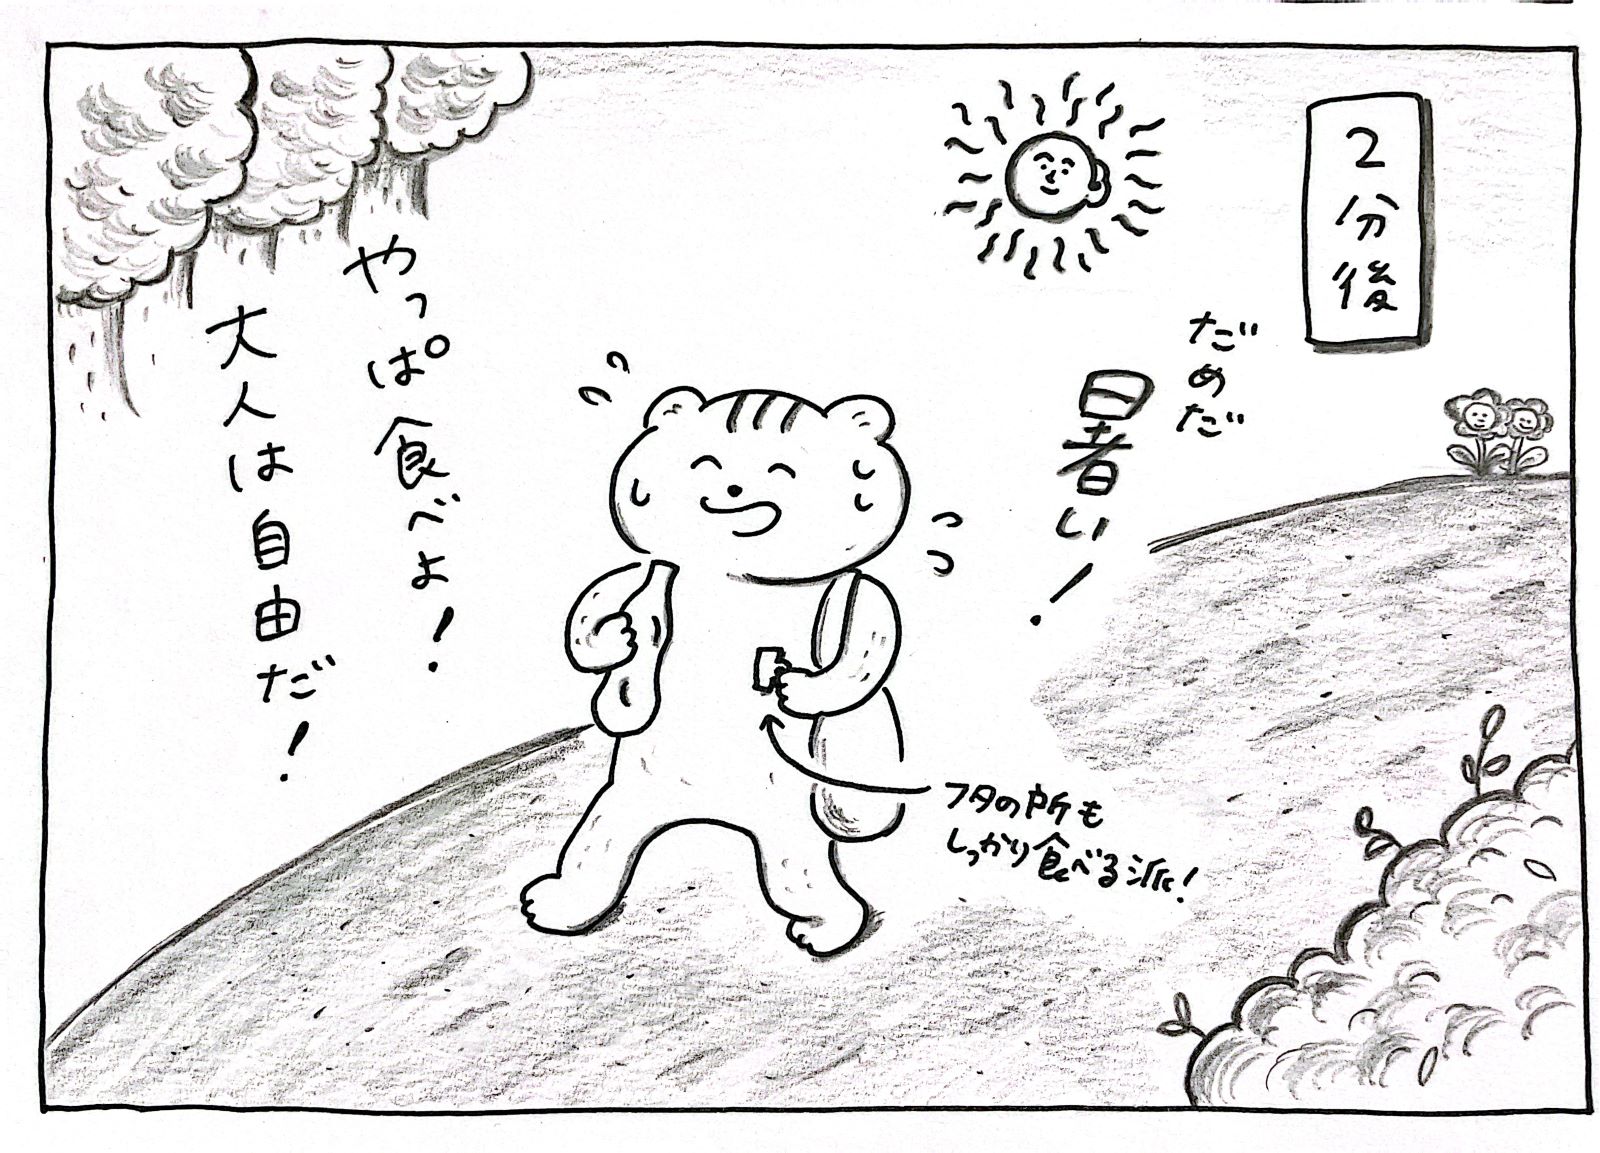 2分後
だめだ
暑い!
フタの所も
しっかり食べる派!
やっぱ食べよ!
大人は自由だ!